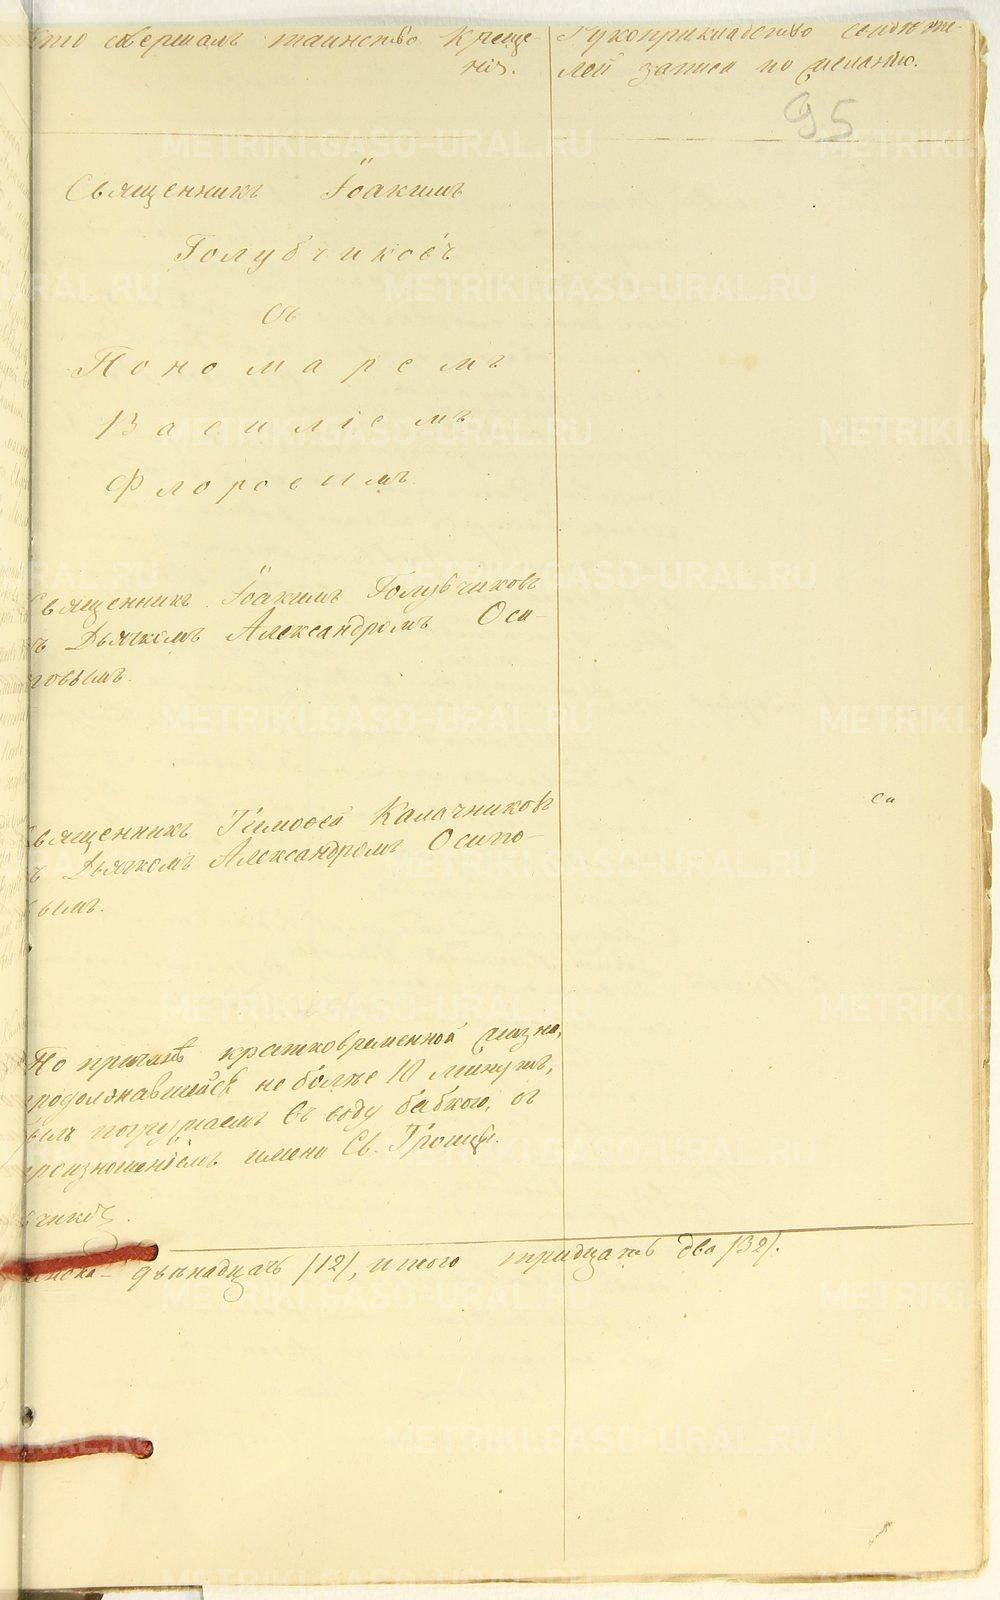 Кто совершалъ таинство Креще-
нія.
Рукоприкладство свидѣте-
лей записи по желанію.
95
Священникъ Іоакимъ
Голубчиковъ
съ
Пономаремъ
Василіемъ
Флоровымъ
Священникъ Іоакимъ Голубчиковъ
съ Дьячкомъ Александромъ Оси-
повымъ.
Священникъ Тимоѳей Калачниковъ
съ Дьячкомъ Александромъ Осипо-
вымъ.
По причинѣ кратковременной жизни,
продолжавшейся не болѣе 10 минутъ,
былъ погружаемъ въ воду бабкою, съ
произношеніемъ имени Св. Троицы.
двѣнадцать /12/, итого тридцать два /32/.
METRIKI.GASO-URAL.RU